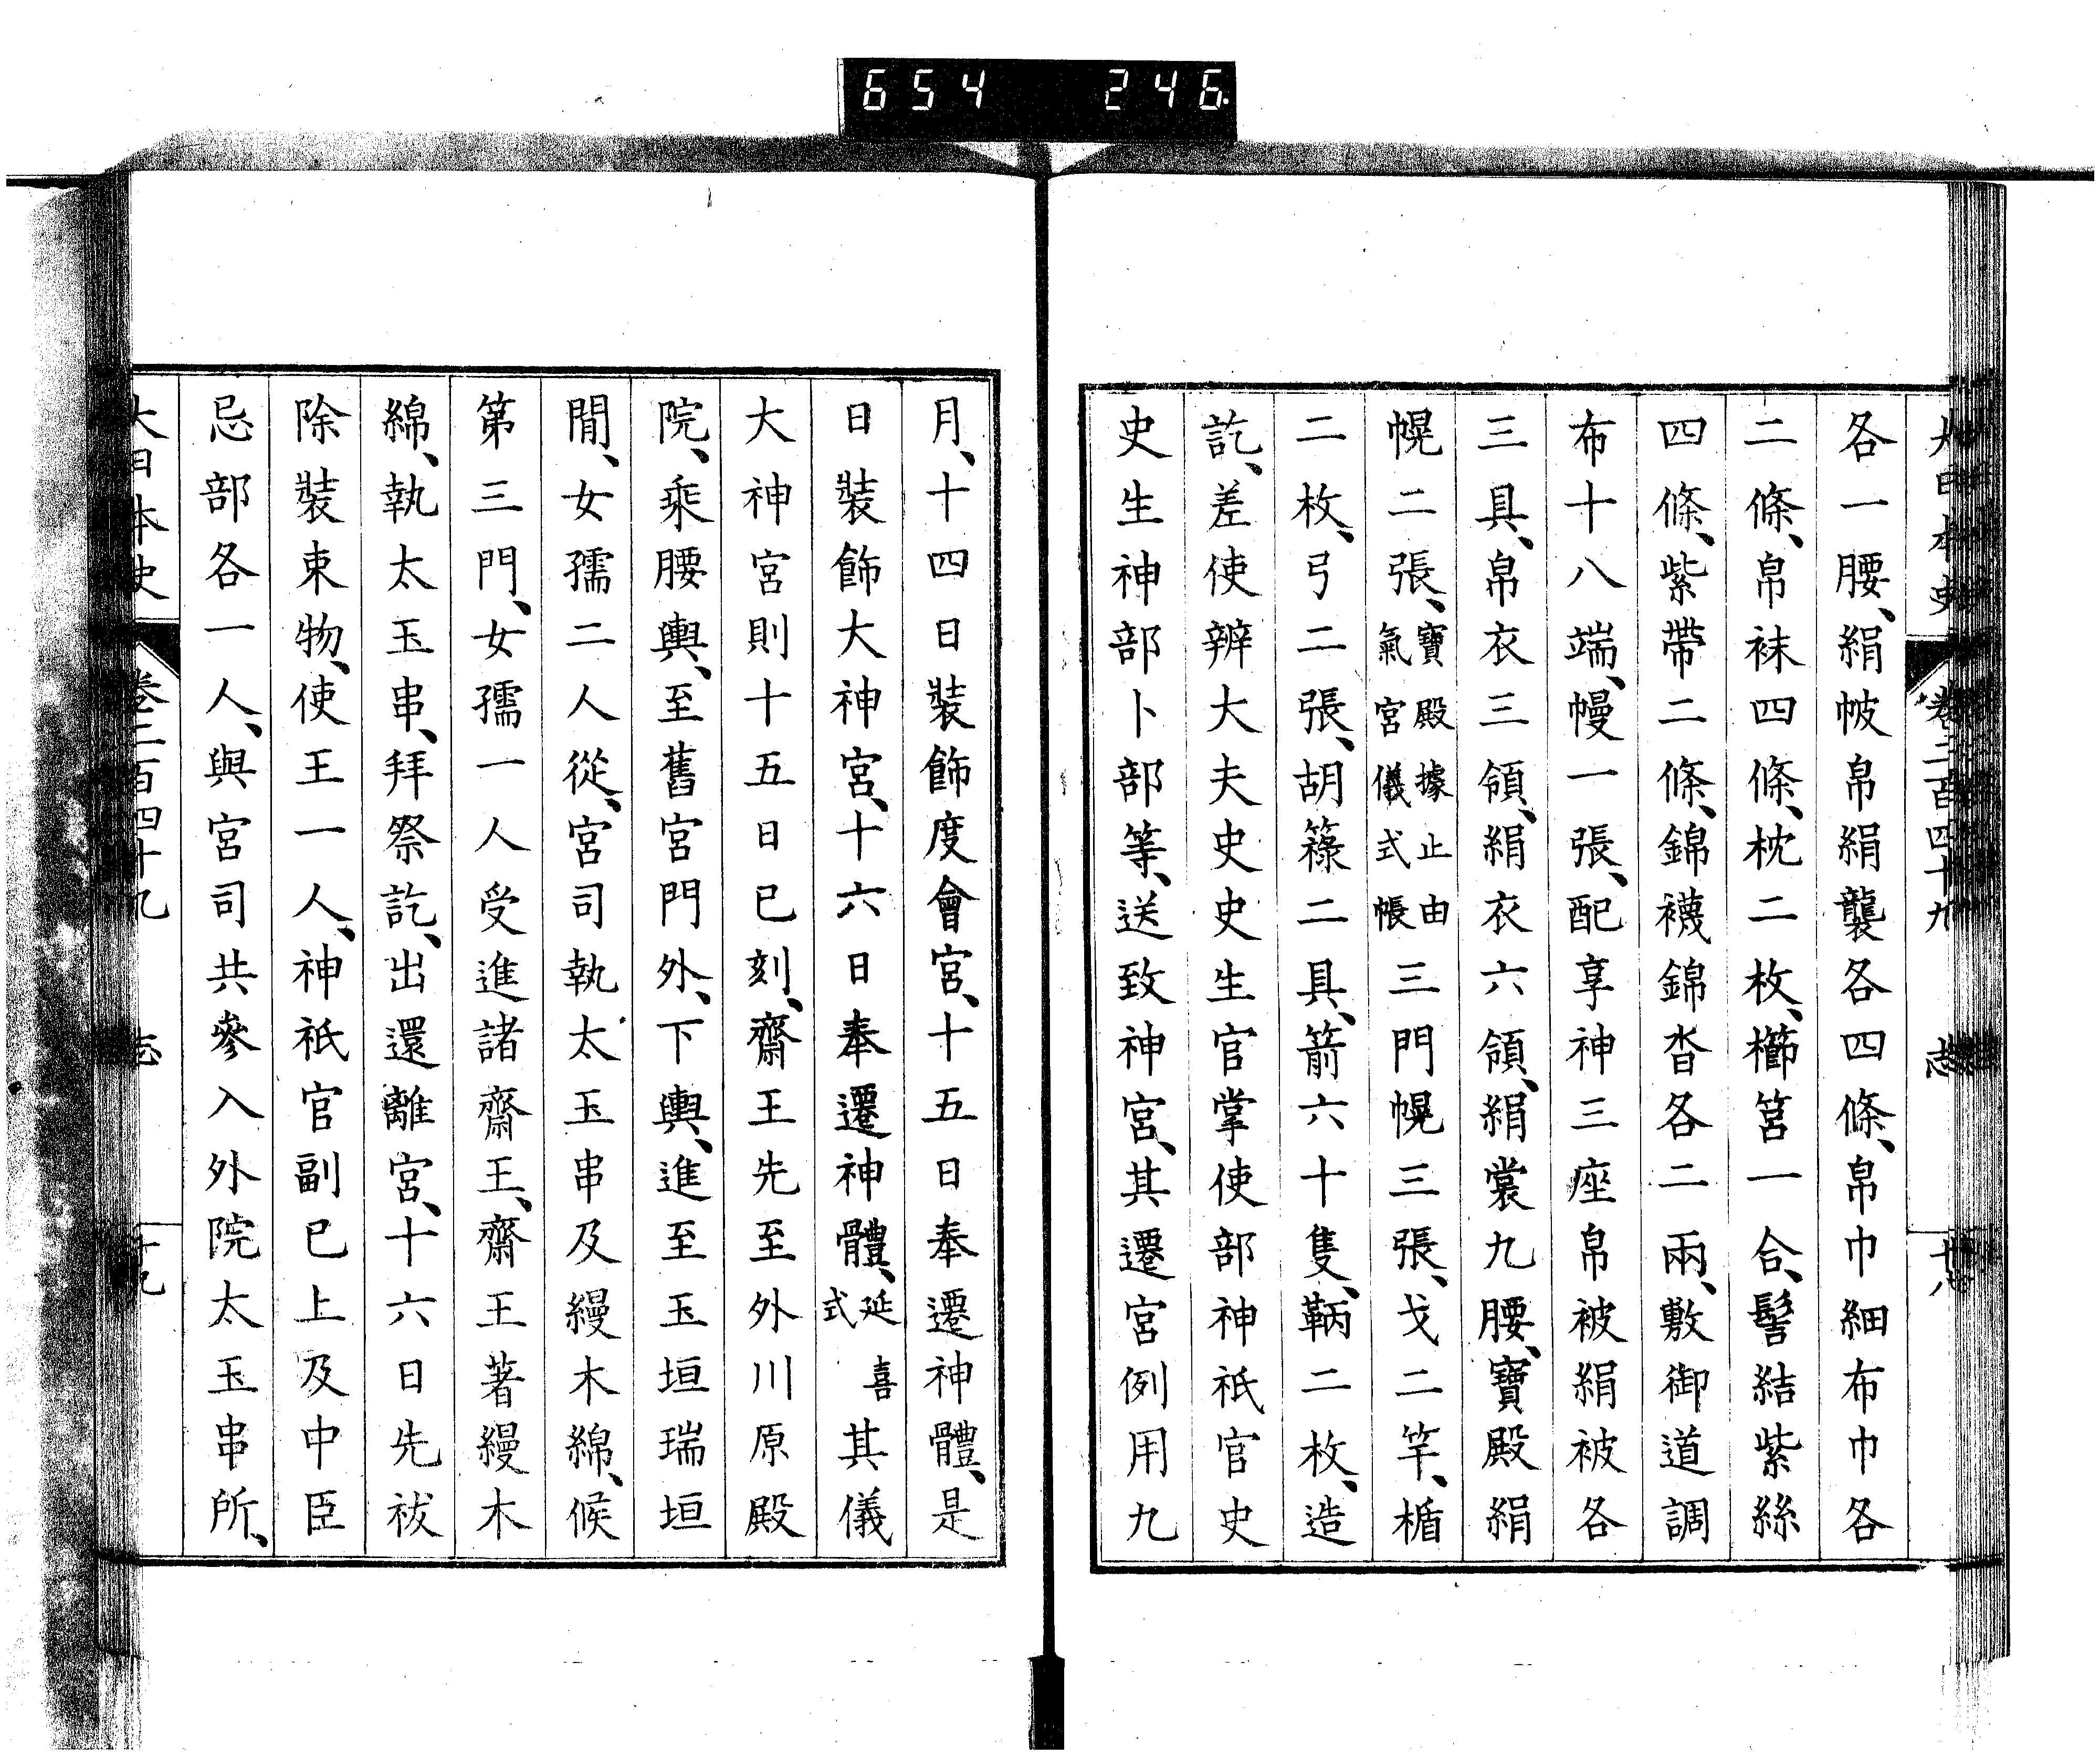 654 246
大日本史 卷二百四十九 志 十八
各一腰、絹帔帛絹襲各四條、帛巾細布巾各
二條、帛袜四條、枕二枚、櫛筥一合、髻結紫絲
四條、紫帶二條、錦襪錦沓各二兩、敷御道調
布十八端、幔一張、配享神三座帛被絹被各
三具、帛衣三領、絹衣六領、絹裳九腰、寶殿絹
幌二張、寶殿據止由氣宮儀式帳三門幌三張、戈二竿、楯
二枚、弓二張、胡簶二具、箭六十隻、鞆二枚、造
訖、差使辨大夫史史生官掌使部神祇官史
史生神部卜部等、送致神宮、其遷宮例用九
月、十四日裝飾度會宮、十五日奉遷神體、是
日裝飾大神宮、十六日奉遷神體、延喜式其儀
大神宮則十五日巳刻、齋王先至外川原殿
院、乘腰輿、至舊宮門外、下輿、進至玉垣瑞垣
閒、女孺二人從、宮司執太玉串及縵木綿、候
第三門、女孺一人受進諸齋王、齋王著縵木
綿、執太玉串、拜祭訖、出還離宮、十六日先祓
除裝束物、使王一人、神祇官副已上及中臣
忌部各一人、與宮司共參入外院太玉串所、
大日本史 卷二百四十九 志 十九